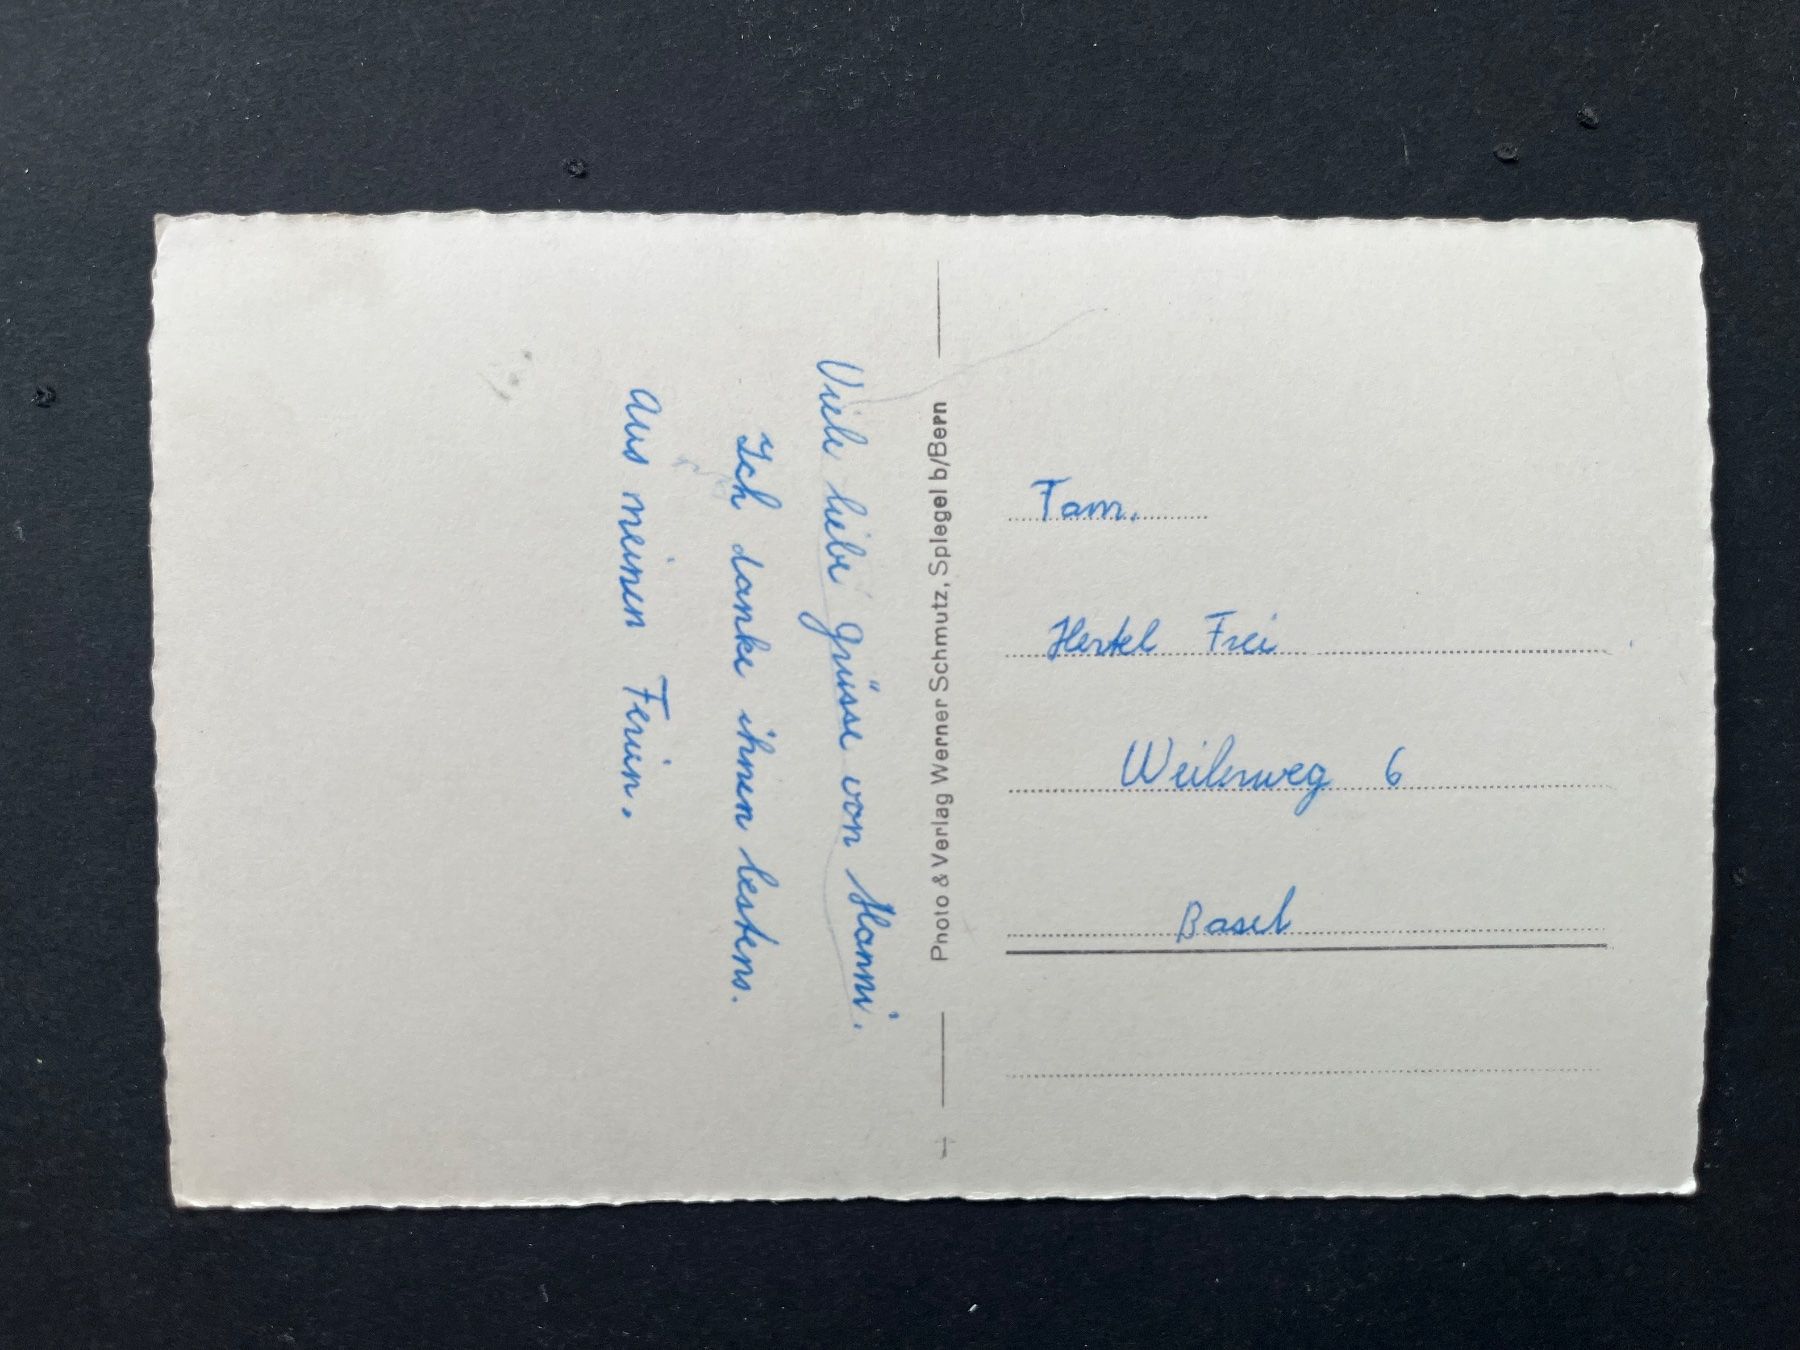 Viele liebe Grüsse von Hanni.
Ich danke ihnen bestens.
Aus meinen Ferien.
Photo & Verlag Werner Schmutz, Spiegel b/Bern
Fam.
Hertel Frei
Weilerweg 6
Basel